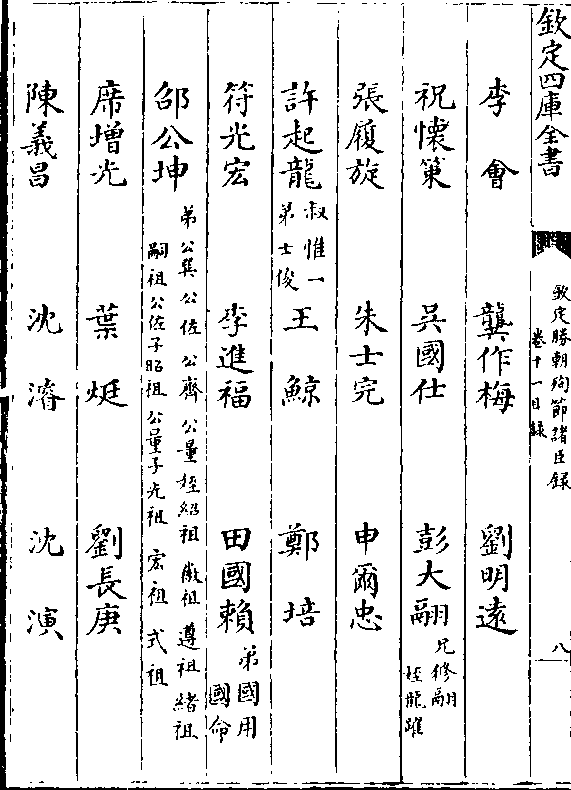 欽定四庫全書
欽定勝朝殉節諸臣錄
卷十一目錄
八
李會 龔作梅 劉明遠
祝懷策 吳國仕 彭大翮 兄修翮 姪龍躍
張履旋 朱士完 申爾忠
許起龍 叔惟一 弟士俊 王鯨 鄭培
符光宏 李進福 田國賴 弟國用 國命
邰公坤 弟公巽 公佐 公齊 公量 姪紹祖 徽祖 遵祖 緒祖
嗣祖 公佐子昭祖 公量子光祖 宏祖 式祖
席增光 葉烶 劉長庚
陳義昌 沈濬 沈演